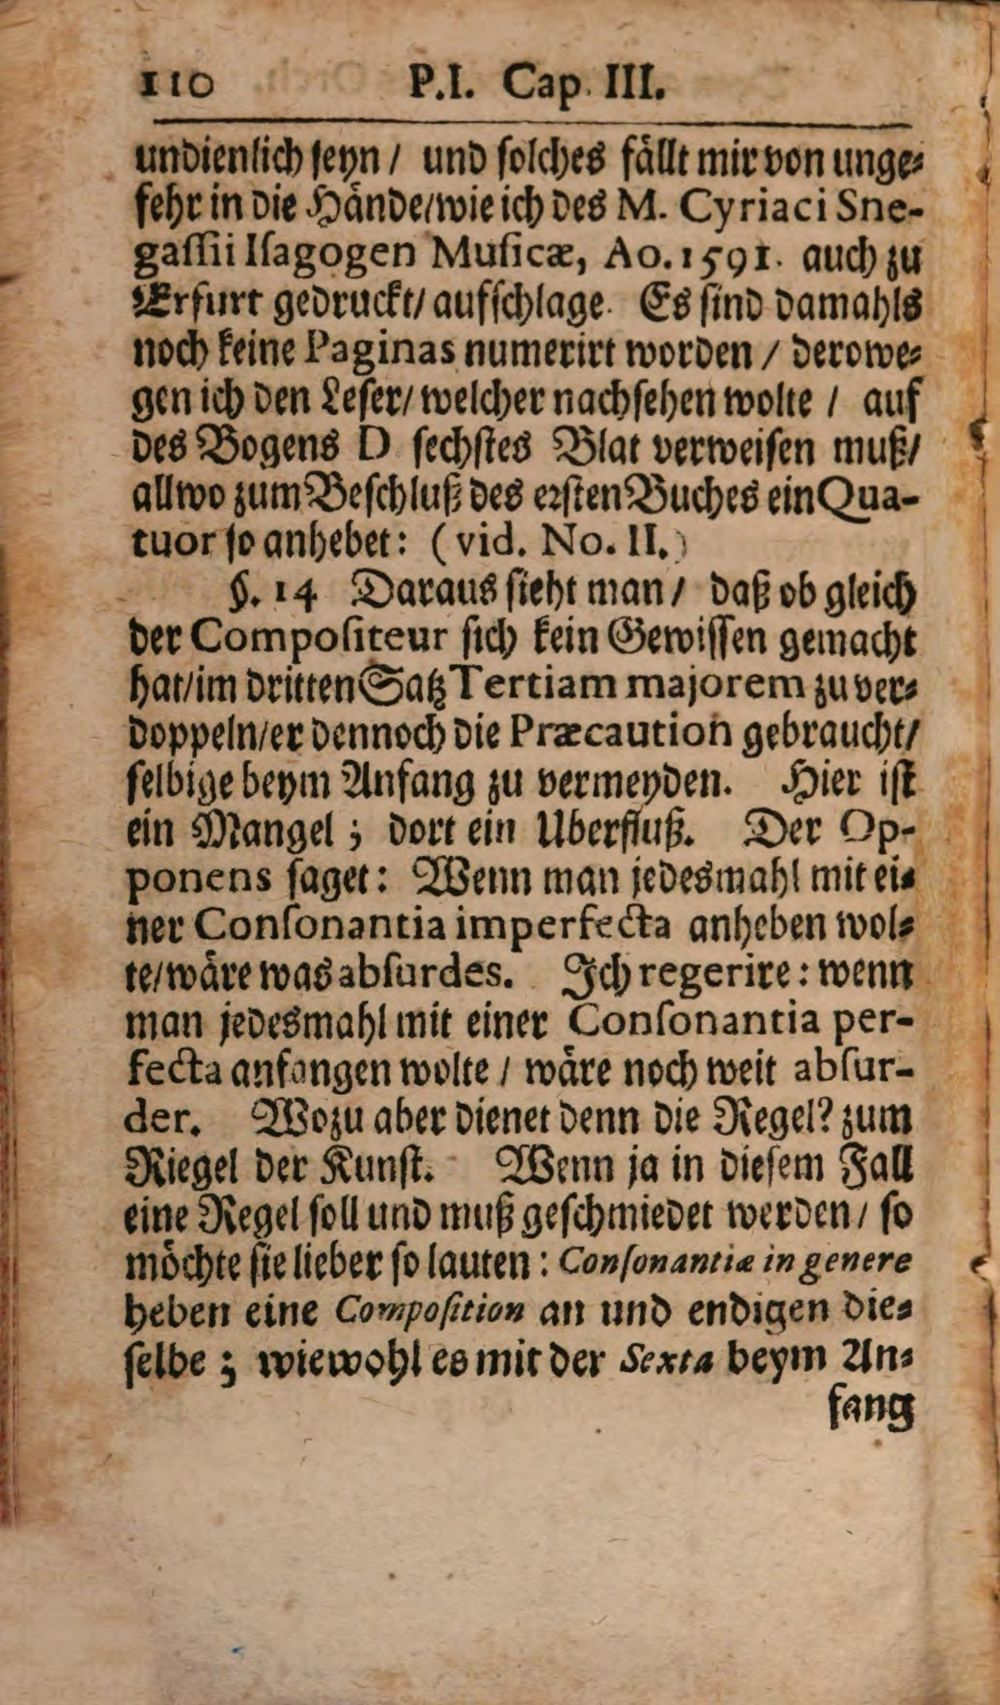 110 P.I. Cap. III.
undienlich ſeyn / und ſolches fällt mir von unge⸗
fehr in die Hände/wie ich des M. Cyriaci Sne-
gaſſii Iſagogen Muſicæ, Ao. 1591. auch zu
Erfurt gedruckt/ aufſchlage. Es ſind damahls
noch keine Paginas numerirt worden / derowe⸗
gen ich den Leſer/ welcher nachſehen wolte / auf
des Bogens D ſechſtes Blat verweiſen muß/
allwo zum Beſchluß des erſten Buches ein Qua-
tuor ſo anhebet: (vid. No. II.)
§. 14 Daraus ſieht man / daß ob gleich
der Compoſiteur ſich kein Gewiſſen gemacht
hat/im dritten Satz Tertiam majorem zu ver⸗
doppeln/er dennoch die Præcaution gebraucht/
ſelbige beym Anfang zu vermeyden. Hier iſt
ein Mangel ; dort ein Uberfluß. Der Op-
ponens ſaget: Wenn man jedesmahl mit ei⸗
ner Conſonantia imperfecta anheben wol⸗
te/wäre was abſurdes. Ich regerire: wenn
man jedesmahl mit einer Conſonantia per-
fecta anfangen wolte / wäre noch weit abſur-
der. Wozu aber dienet denn die Regel? zum
Riegel der Kunſt. Wenn ja in dieſem Fall
eine Regel ſoll und muß geſchmiedet werden/ ſo
möchte ſie lieber ſo lauten: Conſonantiæ in genere
heben eine Compoſition an und endigen die⸗
ſelbe ; wiewohl es mit der Sexta beym An⸗
fang